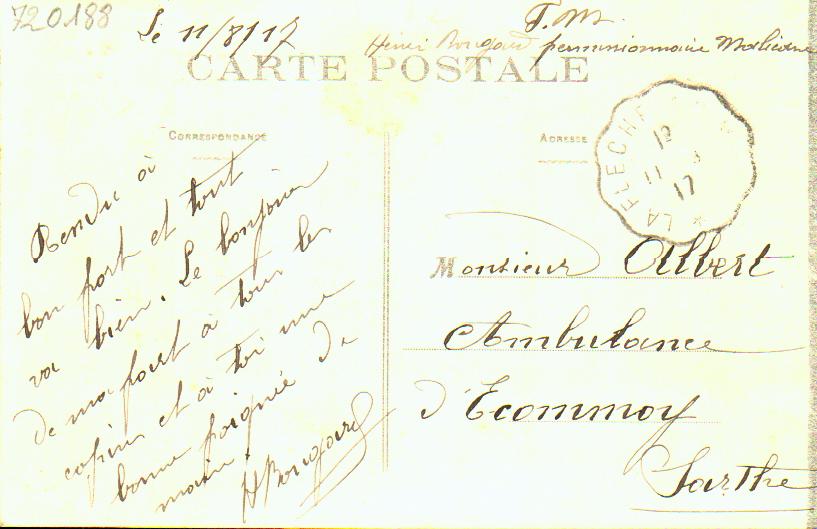 720188
Le 11/8/17
F.M.
Henri Bougard permissionnaire Malicorne
CARTE POSTALE
CORRESPONDANCE
ADRESSE
LA FLECHE
12
11 8
17
Rendu à
bon port et tout
va bien. Le bonjour
de ma part à tous les
copins et à toi une
bonne poignée de
main.
H Bougard
Monsieur Albert
Ambulance
d'Ecommoy
Sarthe